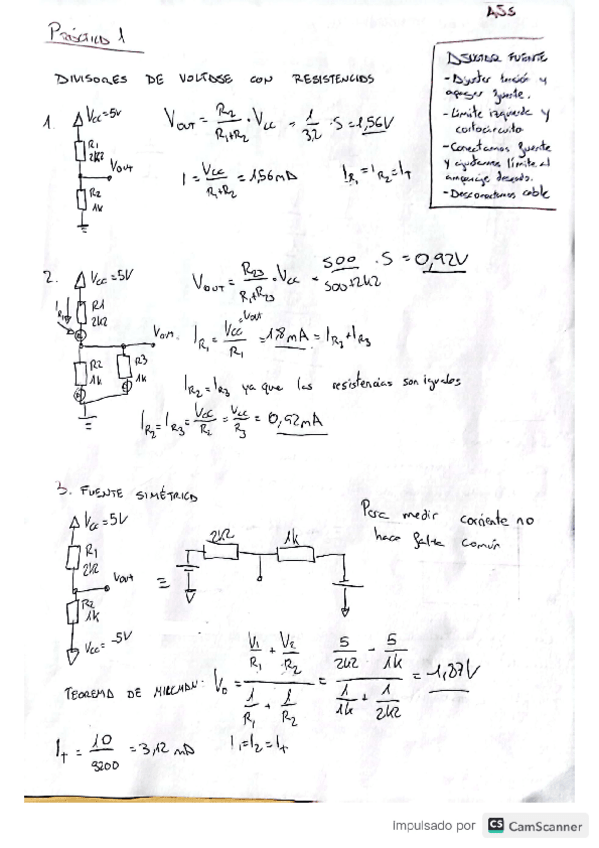 Práctica 1
DIVISORES DE VOLTAJE CON RESISTENCIAS
AJUSTAR FUENTE
- Ajustar tensión y
apagar fuente.
- Límite izquierda y
cortocircuito
- Conectamos fuente
y ajustamos límite al
amperaje deseado.
- Desconectamos cable
1. Vcc=5V
R1
2k2
Vout
R2
1k
Vout = R2/(R1+R2) · Vcc = 1/3,2 · 5 = 1,56V
I = Vcc/(R1+R2) = 1,56mA
IR1 = IR2 = IT
2. Vcc=5V
IR1
R1
2k2
Vout
R2
1k
R3
1k
Vout = R23/(R1+R23) · Vcc = 500/(500+2k2) · 5 = 0,92V
IR1 = (Vcc-Vout)/R1 = 1,8mA = IR2+IR3
IR2 = IR3 ya que las resistencias son iguales
IR2 = IR3 = Vcc/R2 = Vcc/R3 = 0,92mA
3. FUENTE SIMÉTRICA
Vcc=5V
R1
2k2
Vout
R2
1k
Vcc=-5V
≡
2k2
1k
Para medir corriente no
hace falta común
TEOREMA DE MILLMAN: V0 = (V1/R1 + V2/R2)/(1/R1 + 1/R2) = (5/2k2 - 5/1k)/(1/1k + 1/2k2) = -1,87V
IT = 10/3200 = 3,12 mA
I1=I2=IT
Impulsado por CS CamScanner